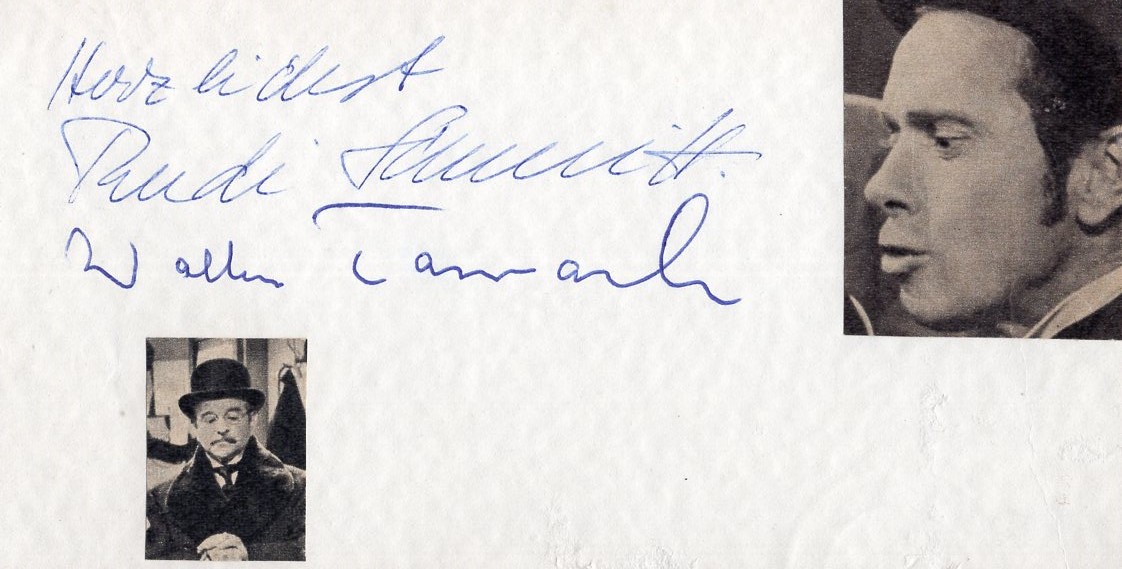 Herzlichst
Rudi Schmitt.
Walter